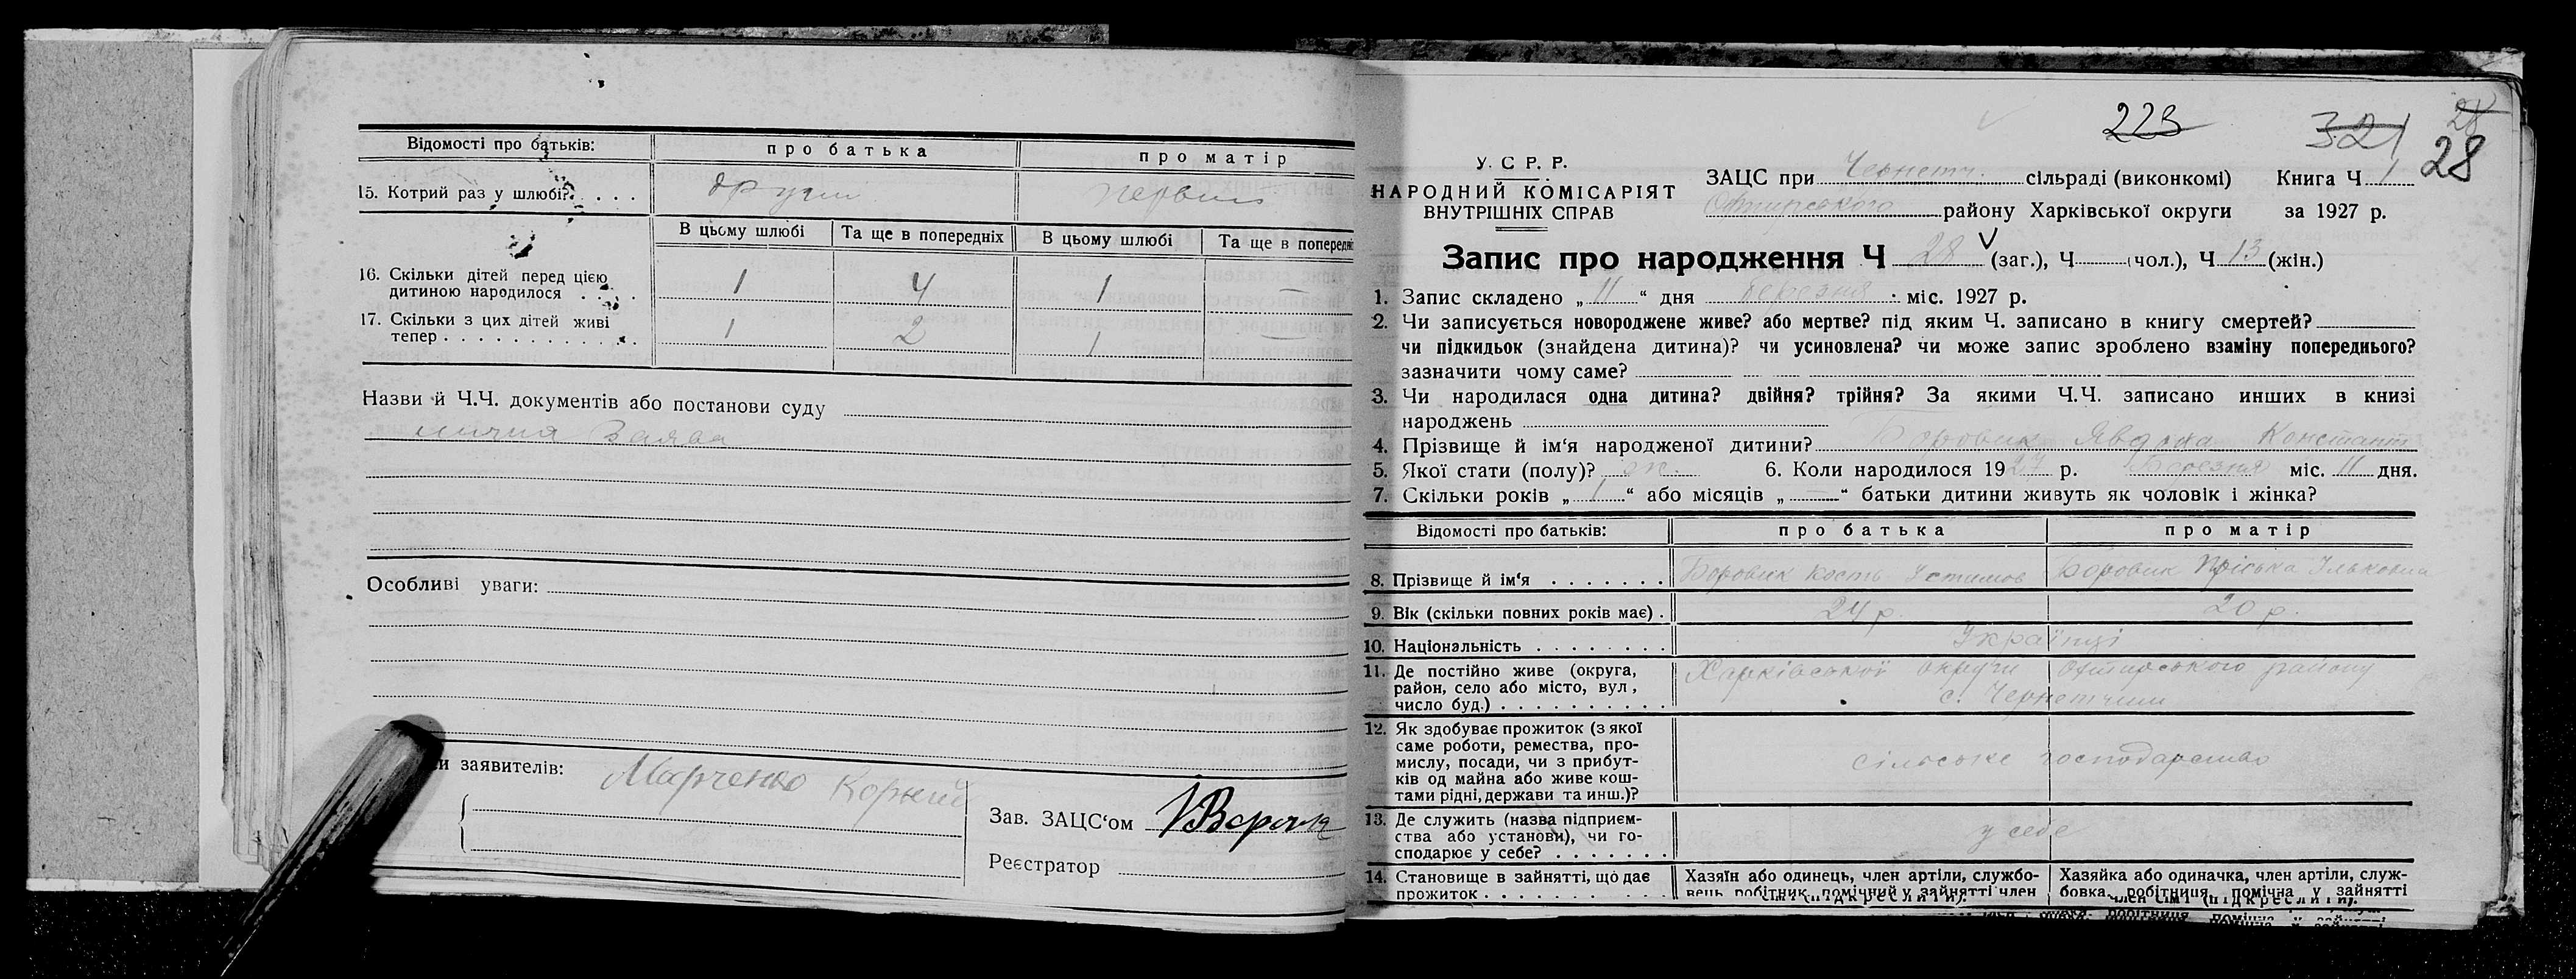 Відомості про батьків: про батька про матір
15. Котрий раз у шлюбі? . . . . други первий
В цьому шлюбі Та ще в попередніх В цьому шлюбі Та ще в попередні
16. Скільки дітей перед цією
дитиною народилося . . . . 1 4 1 —
17. Скільки з цих дітей живі
тепер . . . . . . . . . . . . 1 2 1 —
Назви й Ч.Ч. документів або постанови суду
лична Заява
Особливі уваги:
и заявителів: Марченко Корній
Зав. ЗАЦС‘ом
Реєстратор
223 321 28
28
У. С Р. Р.
НАРОДНИЙ КОМІСАРІЯТ
ВНУТРІШНІХ СПРАВ
ЗАЦС при Чернетч. сільраді (виконкомі) Книга Ч 1
Охтирського району Харківської округи за 1927 р.
Запис про народження Ч 28 (заг.), Ч (чол.), Ч 13 (жін.)
1. Запис складено „ 11 “ дня березня міс. 1927 р.
2. Чи записується новороджене живе? або мертве? під яким Ч. записано в книгу смертей?
чи підкидьок (знайдена дитина)? чи усиновлена? чи може запис зроблено взаміну попереднього?
зазначити чому саме?
3. Чи народилася одна дитина? двійня? трійня? За якими Ч.Ч. записано инших в книзі
народжень
4. Прізвище й ім‘я народженої дитини? Боровик Явдоха Констант
5. Якої стати (полу)? ж. 6. Коли народилося 1927 р. Березня міс. 11 дня.
7. Скільки років „ 1 “ або місяців „ — “ батьки дитини живуть як чоловік і жінка?
Відомості про батьків: про батька про матір
8. Прізвище й ім‘я . . . . . . . Боровик Кость Устимов Боровик Пріська Ільковна
9. Вік (скільки повних років має) . 24 р. 20 р.
10. Національність . . . . . . . . Українці
11. Де постійно живе (округа, Харківської округи Охтирського району
район, село або місто, вул, с. Чернетчини
число буд.) . . . . . . . . . .
12. Як здобуває прожиток (з якої
саме роботи, ремества, про-
мислу, посади, чи з прибут- сільське господарство
ків од майна або живе кош-
тами рідні, держави та инш.)?
13. Де служить (назва підприєм-
ства або установи), чи го- у себе
сподарює у себе? . . . . . . .
14. Становище в зайнятті, що дає Хазяїн або одинець, член артіли, службо- Хазяйка або одиначка, член артіли, служ-
прожиток . . . . . . . . . . . вець, робітник, помічний у зайнятті член бовка, робітниця, помічна у зайнятті
сім‘ї (підкреслити). член сім‘ї (підкреслити).